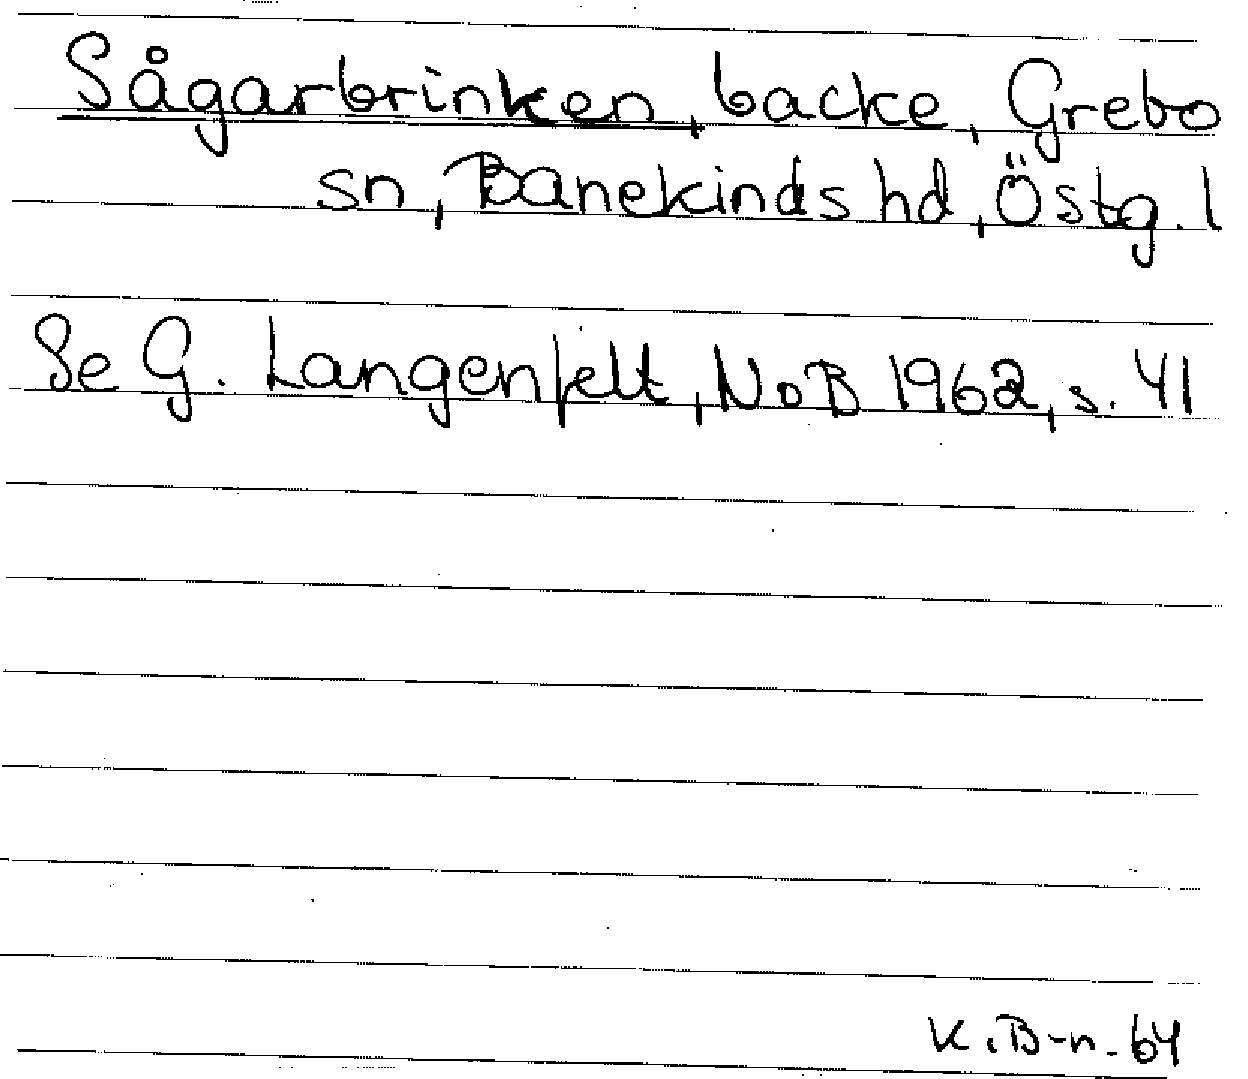 Sågarbrinken, backe, Grebo
sn, Banekinds hd, Östg. l
Se G. Langenfelt, NoB 1962, s. 41
K. B-n. 64